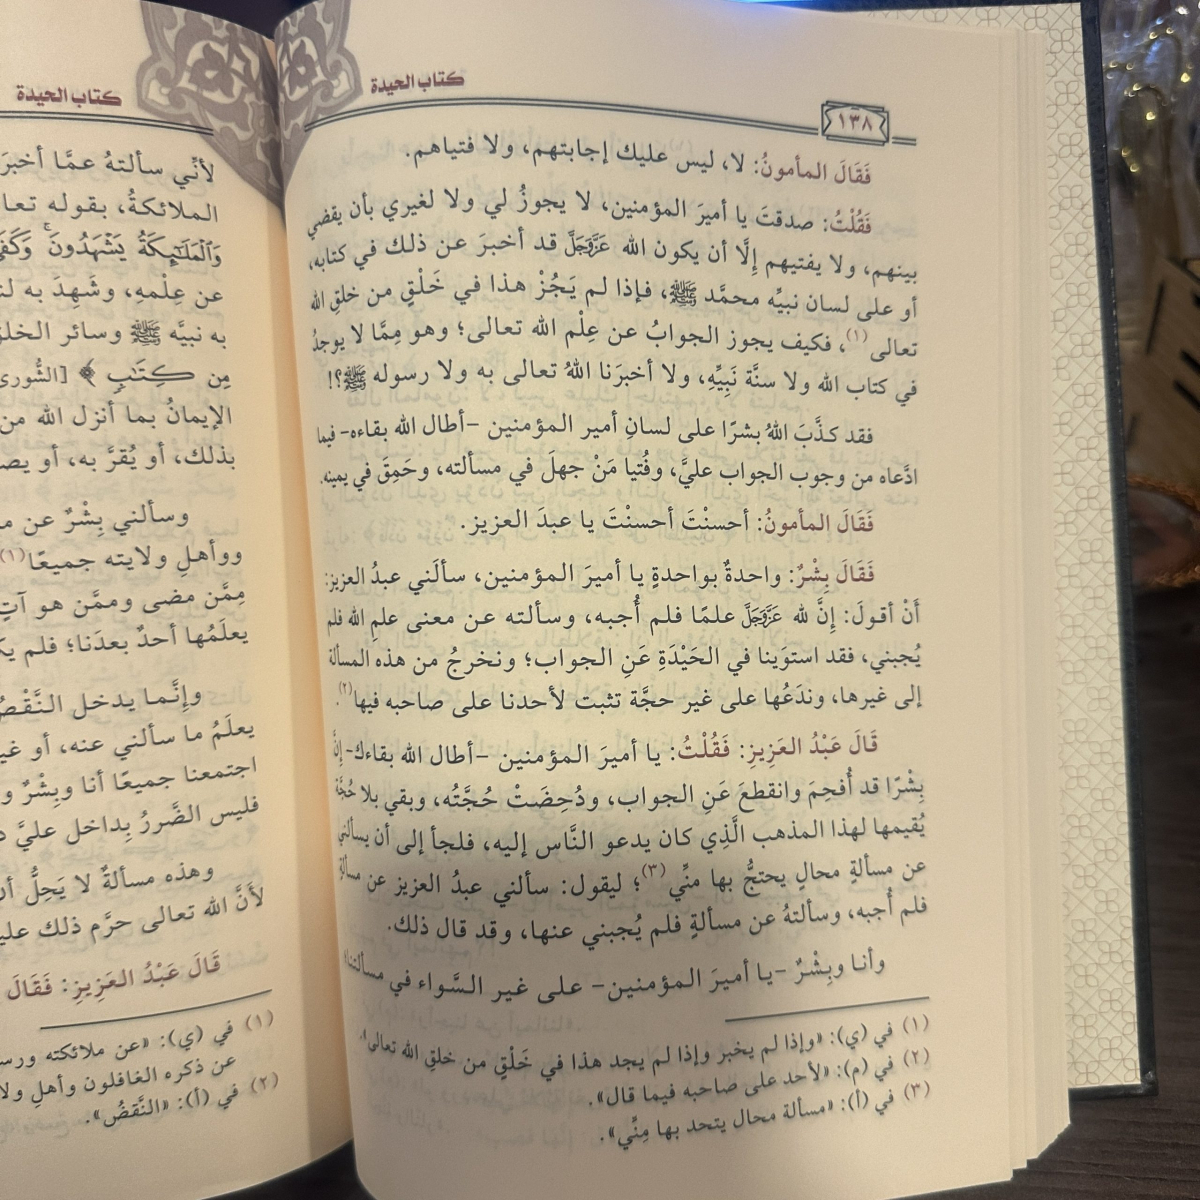 كتاب الحيدة
١٣٨
فَقَالَ المأمونُ: لا، ليس عليك إجابتهم، ولا فتياهم.
فَقُلْتُ: صدقتَ يا أميرَ المؤمنين، لا يجوزُ لي ولا لغيري بأن يقضي
بينهم، ولا يفتيهم إلَّا أن يكون الله عَزَّوَجَلَّ قد أخبرَ عن ذلك في كتابه،
أو على لسان نبيِّه محمَّد ﷺ، فإذا لم يَجُزْ هذا في خَلْقٍ من خلقِ الله
تعالى(١)، فكيف يجوز الجوابُ عن عِلْم الله تعالى؛ وهو مِمَّا لا يوجدُ
في كتاب الله ولا سنَّة نَبِيِّهِ، ولا أخبرَنا اللهُ تعالى به ولا رسوله ﷺ؟!
فقد كذَّبَ اللهُ بشرًا على لسانِ أمير المؤمنين -أطال الله بقاءه- فيما
ادَّعاه من وجوب الجواب عليَّ، وفُتيا مَنْ جهلَ في مسألته، وحَمِقَ في يمينه.
فَقَالَ المأمونُ: أحسنْتَ أحسنْتَ يا عبدَ العزيز.
فَقَالَ بِشْرٌ: واحدةٌ بواحدةٍ يا أميرَ المؤمنين، سألَني عبدُ العزيز:
أَنْ أقولَ: إنَّ لله عَزَّوَجَلَّ علمًا فلم أُجبه، وسألته عن معنى علمِ الله فلم
يُجبني، فقد استوَينا في الحَيْدَةِ عَنِ الجواب؛ ونخرجُ من هذه المسألة
إلى غيرها، وندَعُها على غير حجَّة تثبت لأحدنا على صاحبه فيها(٢).
قَالَ عَبْدُ العَزِيزِ: فَقُلْتُ: يا أميرَ المؤمنين -أطال الله بقاءك- إنَّ
بِشْرًا قد أُفحِمَ وانقطعَ عَنِ الجواب، ودُحِضَتْ حُجَّتُه، وبقي بلا حُجَّةٍ
يُقيمها لهذا المذهب الَّذِي كان يدعو النَّاس إليه، فلجأ إلى أن يسألني
عن مسألةٍ محالٍ يحتجُّ بها منِّي(٣)؛ ليقول: سألني عبدُ العزيز عن مسألةٍ
فلم أُجبه، وسألتهُ عن مسألةٍ فلم يُجبني عنها، وقد قال ذلك.
وأنا وبِشْرٌ -يا أميرَ المؤمنين- على غير السَّواء في مسألتنا؛
(١) في (ي): «وإذا لم يخبر وإذا لم يجد هذا في خَلْقٍ من خلقِ الله تعالى».
(٢) في (م): «لأحد على صاحبه فيما قال».
(٣) في (أ): «مسألة محال يتحد بها مِنِّي».
كتاب الحيدة
لأنِّي سألتهُ عمَّا أخبرَ
الملائكةُ، بقوله
وَٱلۡمَلَٰٓئِكَةُ يَشۡهَدُونَۚ
عن عِلْمهِ، وشَهِدَ به
به نبيَّه ﷺ وسائر
مِن كِتَٰبٖ﴾ [الشُّورى
الإيمانُ بما أنزل الله من
بذلك، أو يُقرَّ به، أو
وسألني بِشْرٌ عن
ووأهلِ ولايته جميعًا(١)
مِمَّن مضى وممَّن هو آتٍ
يعلَمُها أحدٌ بعدَنا؛ فلم
وإنَّما يدخل النَّقْصُ
يعلَمُ ما سألني عنه، أو
اجتمعنا جميعًا أنا وبِشْرٌ
فليس الضَّررُ بِداخل عليَّ
وهذه مسألةٌ لا يَحِلُّ
لأنَّ الله تعالى حرَّم ذلك
قَالَ عَبْدُ العَزِيزِ: فَقَالَ
(١) في (ي): «عن ملائكته
عن ذكره الغافلون وأهلِ
(٢) في (أ): «النَّقضُ».